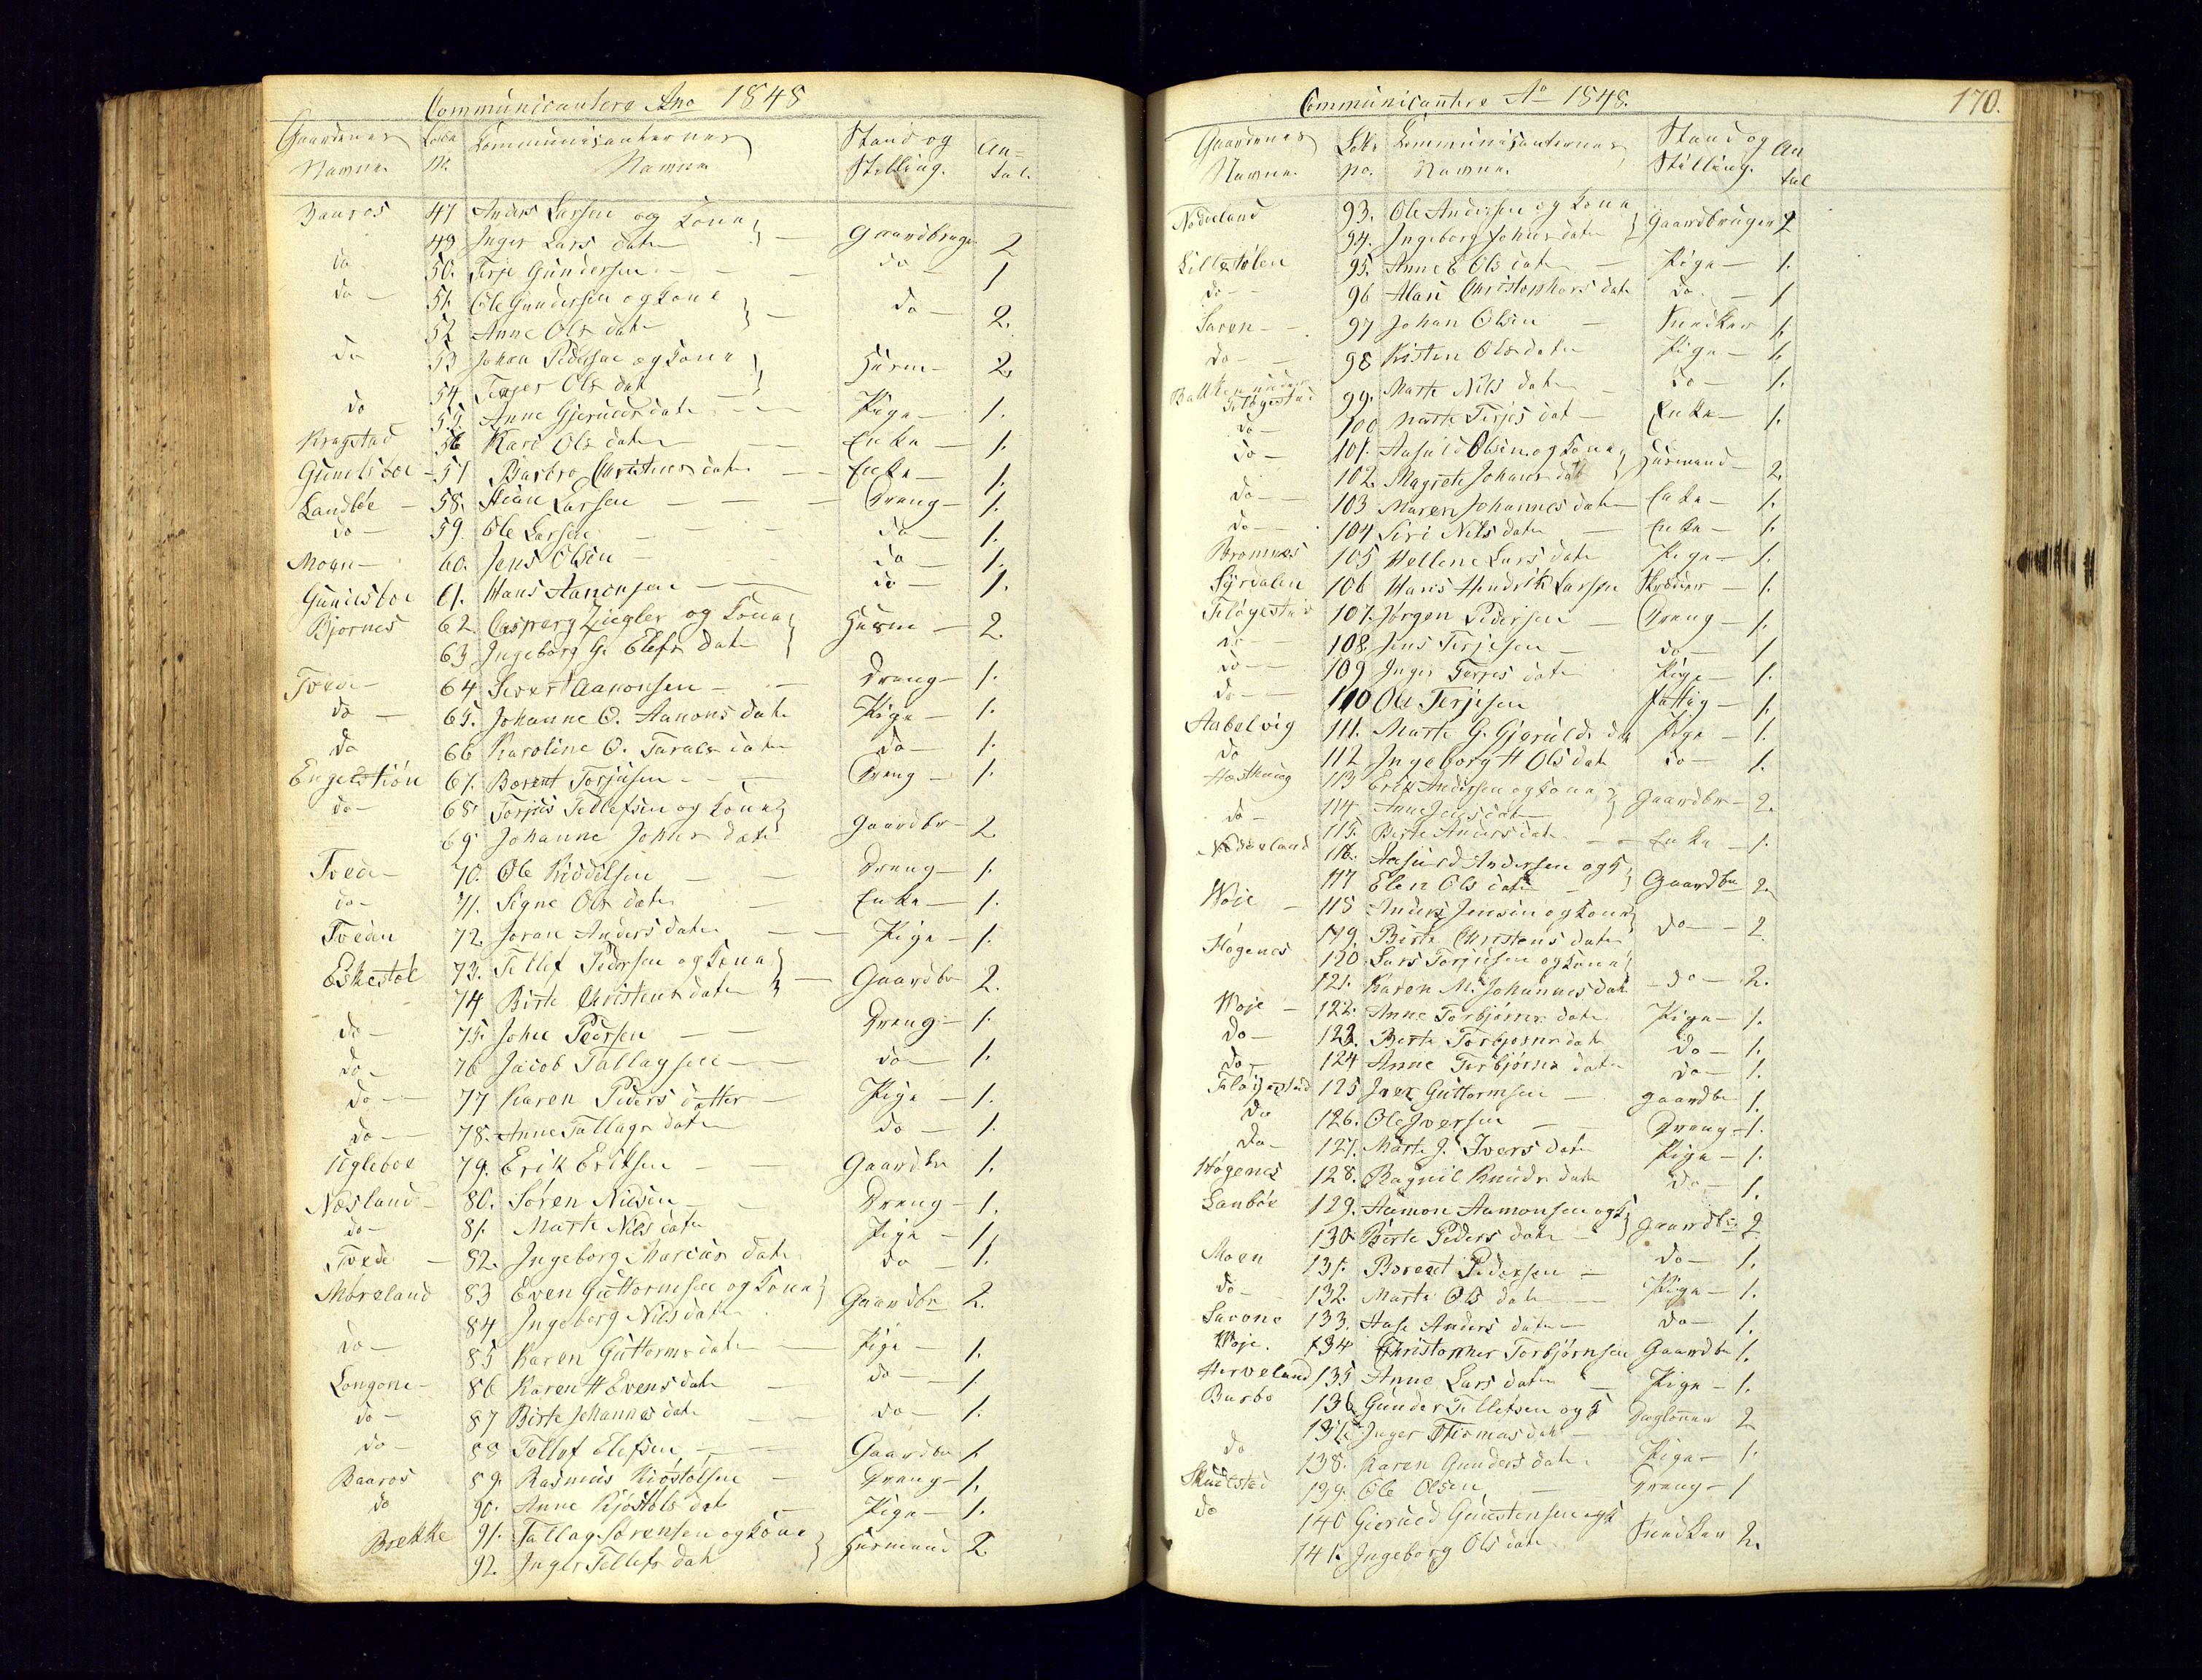 Communicantere Ano 1848
Gaardenes Navne Løbe N. Communicanternes Navne Stand og Stilling. An= tal.
Baaros 47 Anders Larsen og Kone
49 Inger Lars dater Gaardbruger 2
do 50. Terje Gundersen do 1
do 51. Ole Gundersen og Kone
52 Anne Ols dater do 2.
do 53 Johan Pedersen og Kone
54. Ols dat Husm 2.
do 55. Anne Gjeruldsdater Pige 1.
Kragstad 56 Kari Ols dater Enke 1.
57 Barbro Christens dater Enke 1.
Landbøe 58. Larsen Dreng 1.
do 59. Ole Larsen do 1.
Moen 60. Jens Olsen do 1.
61. Hans Aanonsen do 1.
Bjornes 62. Casper Ziegler og Kone Husm 2.
63 Ingeborg G. Elefs dater
Tvede 64 Sivert Aanonsen Dreng 1.
do 65. Johanne O. Aanons dater Pige 1.
do 66 Karoline O. Taralds dater do 1.
67. Berent Torjusen Dreng 1.
do 68 Torjus Tellefsen og Kone
69 Johanne Johns dater Gaardbr 2.
Tvede 70. Ole Kiddelsen Dreng 1.
do 71. Signe Ols dater Enke 1.
Tveden 72. Joran Anders dater Pige 1.
Eskestøl 73. Tellef Pedersen og Kone
74 Birte Christens dater Gaardbr 2.
do 75. John Pedersen Dreng 1.
do 76 Jacob Tallagsen do 1.
do 77 Karen Peders datter Pige 1.
do 78. Anne Tallags dater do 1.
Ugleboe 79. Erik Eriksen Gaardbr 1.
Næsland 80. Søren Nielsen Dreng 1.
do 81. Marte Nils dater Pige 1.
Tvede 82. Ingeborg Marcus dater do 1.
Møreland 83 Even Guttormsen og Kone Gaardbr 2.
84 Ingeborg Nils dater
do 85 Karen Guttorms dater Pige 1.
Longone 86 Karen H Evens dater do 1.
do 87 Birte Johannes dater do 1.
do 88 Tollef Elefsen Gaardbr 1.
Baaros 89. Rasmus Kiøstolsen Dreng 1.
do 90. Anne Kjøstols dat Pige 1.
Brekke 91. Tallag Sørensen og Kone
92. Inger Tellefs dat Husmand 2.
Communicantere Ao 1848. 170.
Gaardenes Navne. Løbe no. Communicanternes Navne. Stand og Stilling. An tal
Nødeland 93. Ole Andersen og Kone
94. Ingeborg Johns dater Gaardbruger 2
Lillestølen 95. Anne E Ols dater Pige 1.
do 96 Mari Christophers dat do 1
97 Johan Olsen Snedker 1.
do 98 Kisten Ols dater Pige 1.
99. Marte Nils dater do 1.
do 100 Marte Terjes dat Enke 1.
do 101. Aasuld Olsen og Kone
102. Magrete Johans dat Husmand 2.
do 103 Maren Johannes dater Enke 1.
do 104 Siri Nils dater Enke 1.
Bromnes 105 Hellene Lars dater Pige 1.
Syrdalen 106 Hans Hendrik Larsen 1.
Fløgestad 107. Jørgen Pedersen Dreng 1.
do 108. Jens Terjesen do 1
do 109 Inger Terjes dater Pige 1.
do 110 Ole Terjesen Fattig 1.
Aabelvig 111. Marte G. Gjerulds dat Pige 1.
do 112 Ingeborg H Ols dat do 1.
113 Erik Andersen og Kone
do 114. Anne Jens dater Gaardbr 2.
115. Birte Anders dater Enke 1.
Nødeland 116. Aasuld Andersen og K
117 Elen Ols dater Gaardbr 2.
Woje 118 Anders Jensen og Kone
119. Birte Christens dater do 2.
Høgenes 120 Lars Torjusen og Kone
121. Karen M. Johannes dat do 2.
Woje 122. Anne Torbjørns dater Pige 1.
do 123. Berte Torbjørns dat do 1.
do 124 Anne Torbjørns dater do 1.
Fløgestad 125 Iver Guttormsen gaardbr 1.
do 126. Ole Iversen Dreng 1.
do 127. Marte J. Ivers dater Pige 1.
Høgenes 128. Ragnil Knuds dater do 1.
Lanbøe 129. Aamon Aamonsen og K
130. Birte Peders dater gaardbr. 2
Moen 131. Berent Pedersen do 1.
do 132. Marte Ols dater Pige 1.
133. Aase Anders dater do 1.
Woje. 134 Christopher Torbjørnsen Gaardbr 1.
Herveland 135 Anne Lars dater Pige 1.
Barbo 136 Gunder Tellefsen og K Daglønner 2
137. Inger Thomas dat
do 138. Karen Gunders dater Pige 1.
139. Ole Olsen Dreng 1
do 140 Gierued Gunstensen og K Snedker 2.
141. Ingeborg Ols dater